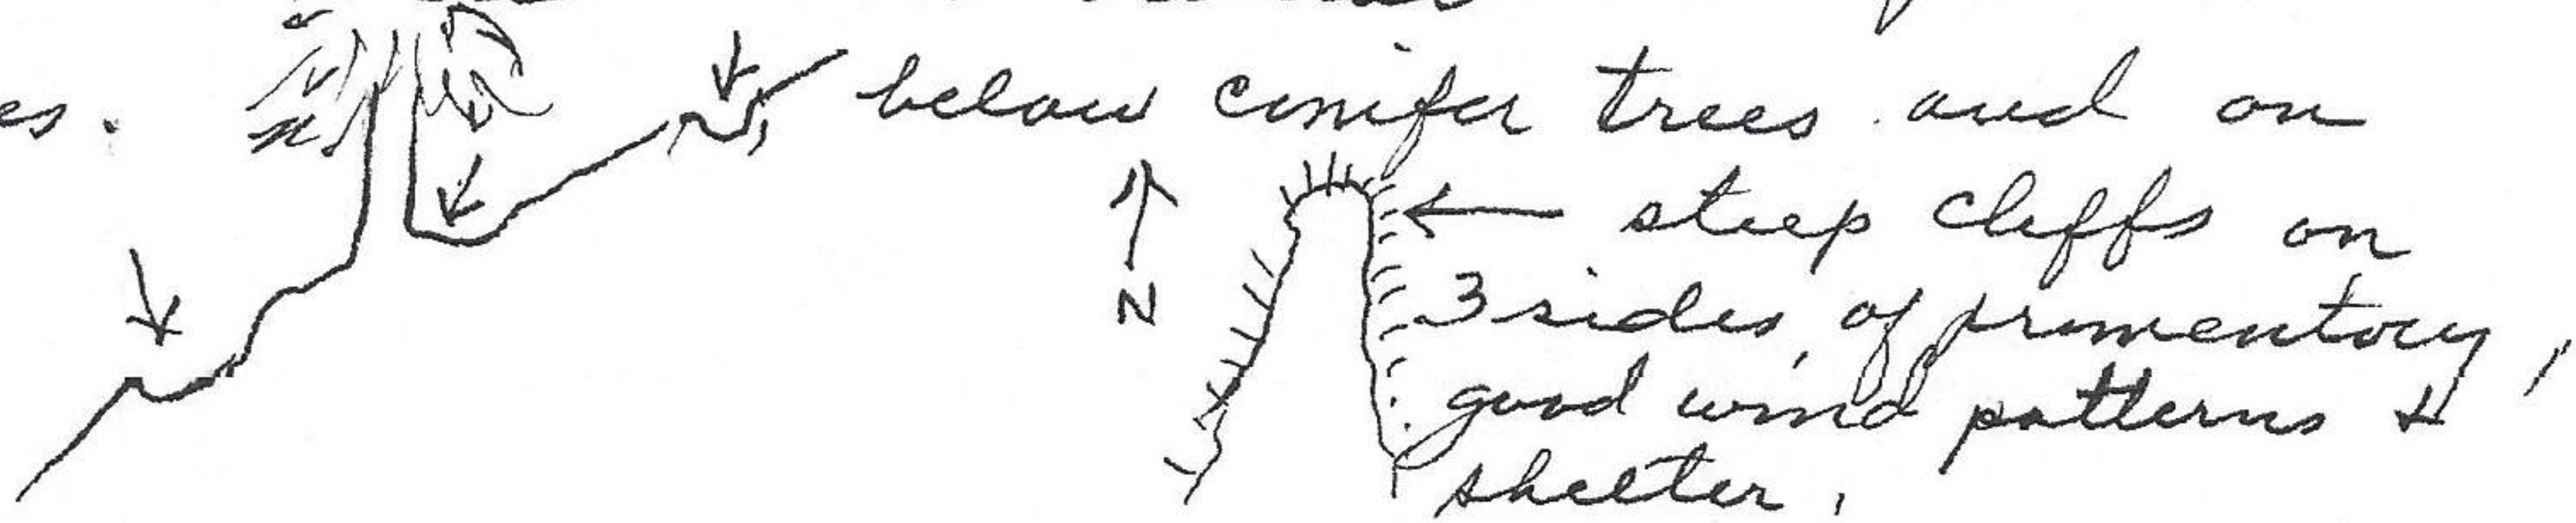 es. below conifer trees and on
← steep cliffs on
N 3 sides, of promentory,
good wind patterns +
shelter.